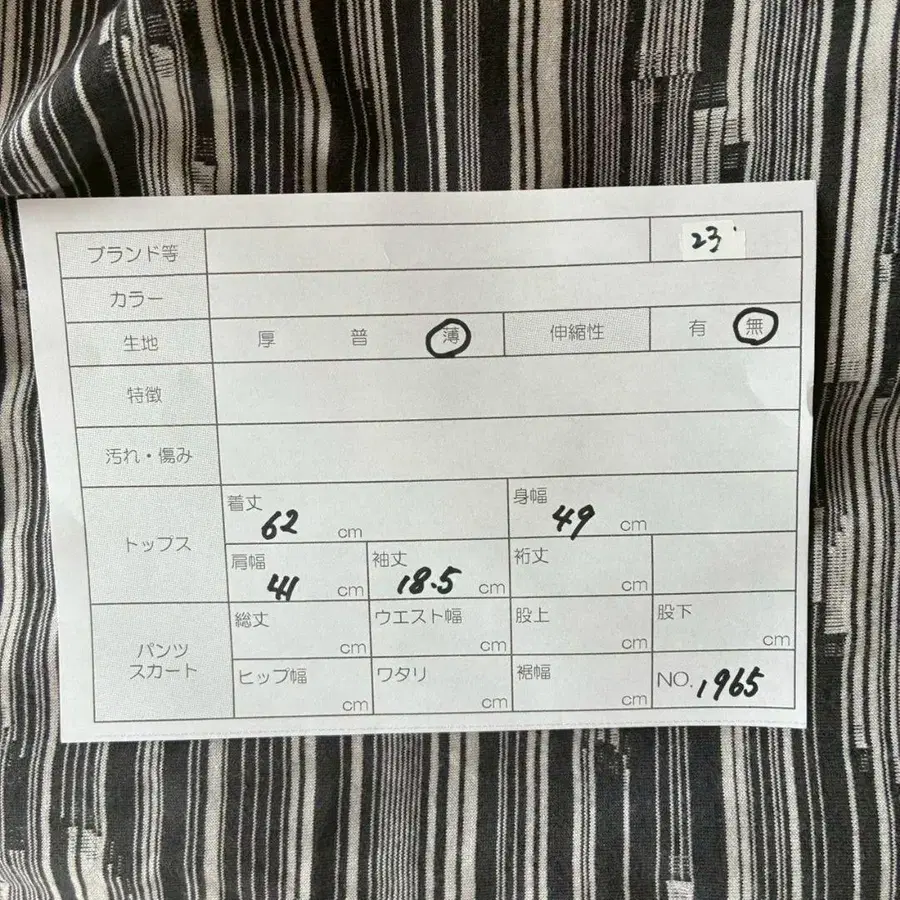 ブランド等 23
カラー
生地 厚 普 薄 伸縮性 有 無
特徴
汚れ・傷み
トップス
着丈 62 cm 身幅 49 cm
肩幅 41 cm 袖丈 18.5 cm 裄丈 cm
パンツ
スカート
総丈 cm ウエスト幅 cm 股上 cm 股下 cm
ヒップ幅 cm ワタリ cm 裾幅 cm NO. 1965